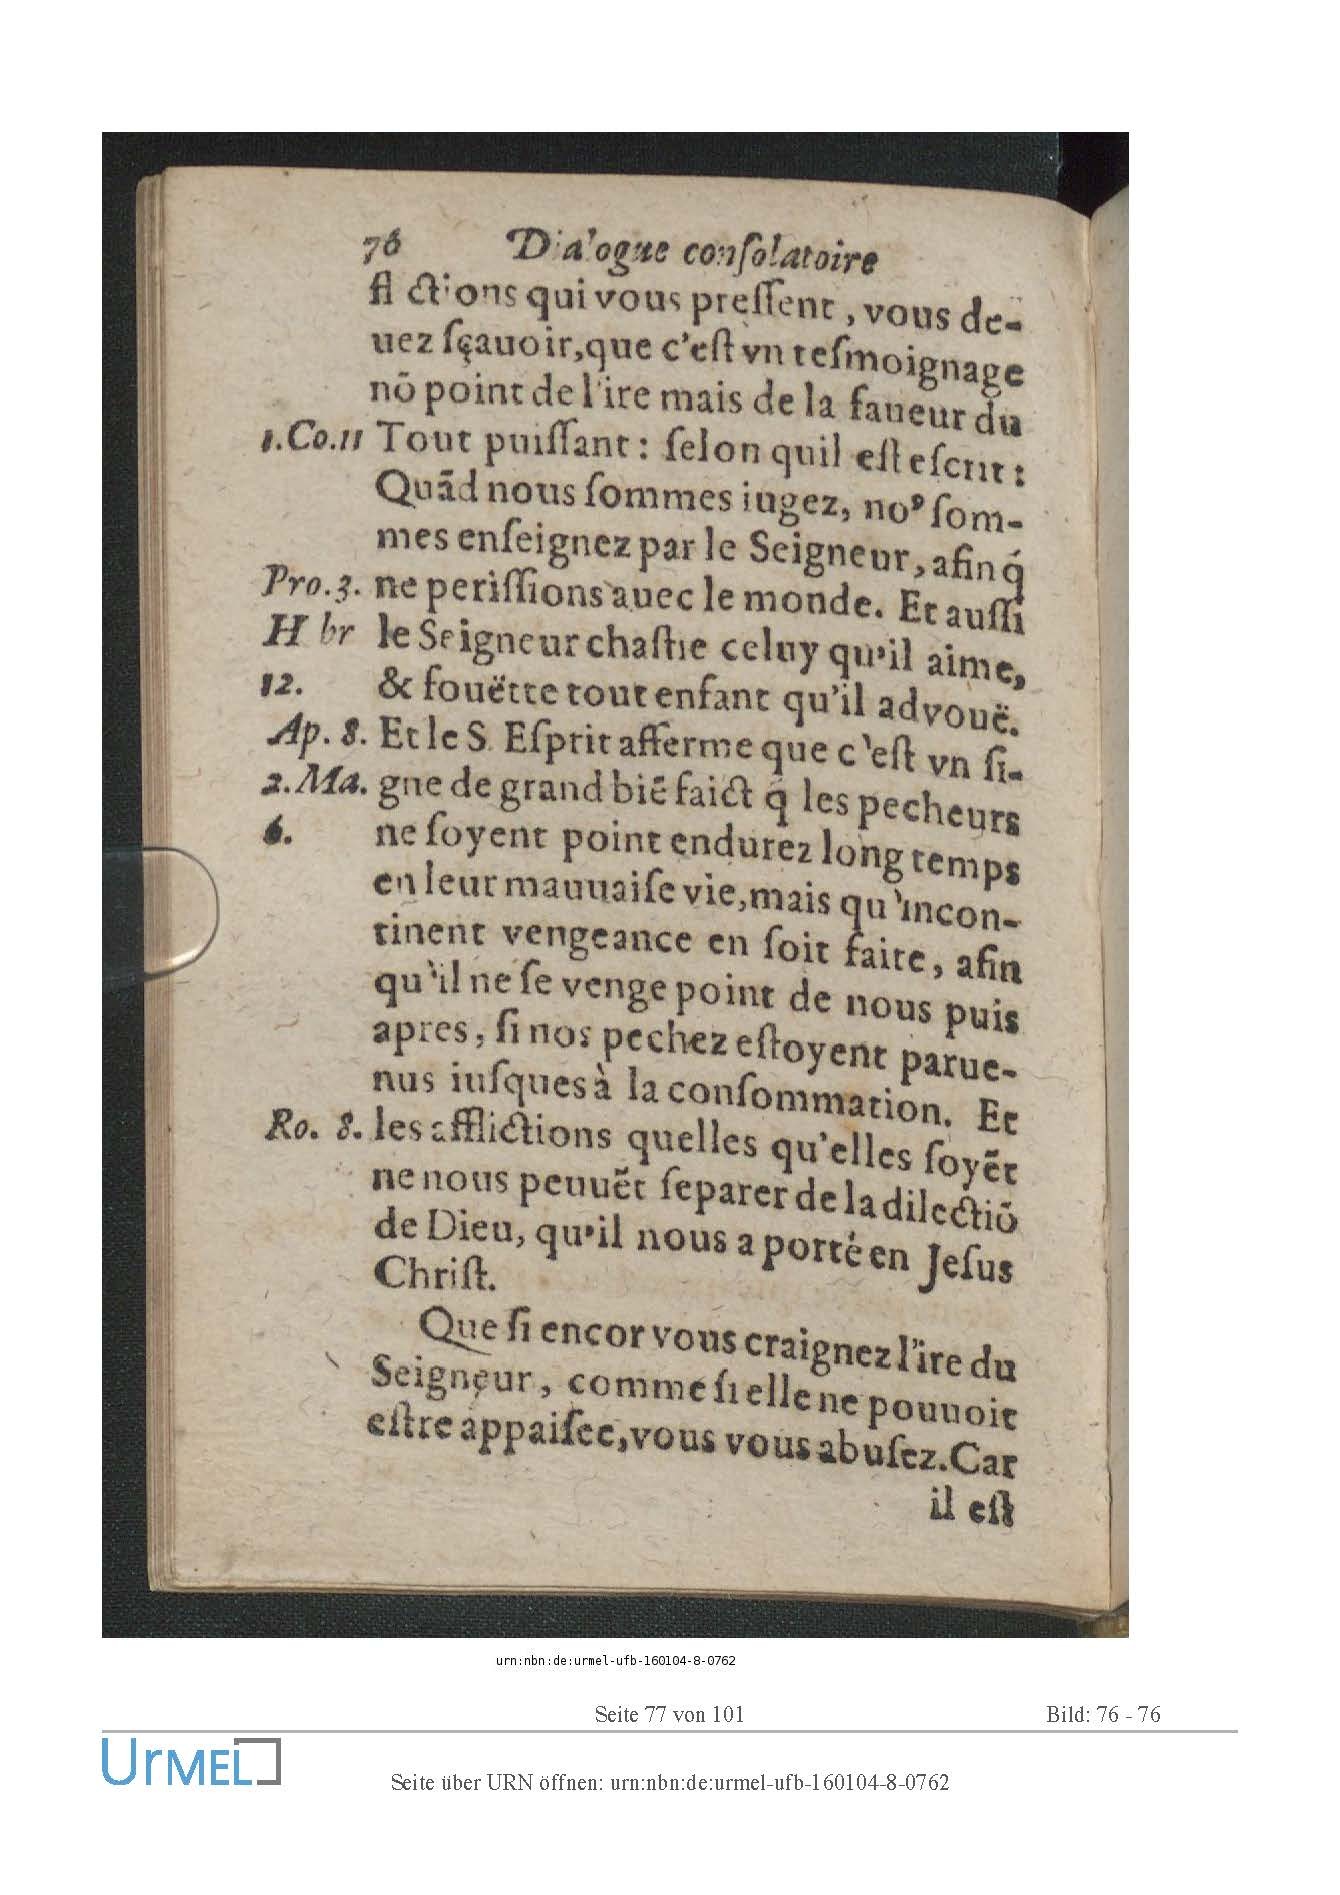 76 Dialogue conſolatoire
fl ctions qui vous preſſent, vous de-
uez ſçauoir, que c'eſt vn teſmoignage
nō point de l'ire mais de la faueur du
1.Co.11 Tout puiſſant: ſelon quil eſt eſcrit:
Quād nous ſommes iugez, noꝰ ſom-
mes enſeignez par le Seigneur, afin q́
Pro.3. ne periſſions auec le monde. Et auſſi
H br le Seigneur chaſtie celuy qu'il aime,
12. & fouëtte tout enfant qu'il advouë.
Ap. 8. Et le S. Eſprit afferme que c'eſt vn ſi-
2.Ma. gne de grand biē faict q́ les pecheurs
6. ne ſoyent point endurez long temps
en leur mauuaiſe vie, mais qu'incon-
tinent vengeance en ſoit faite, afin
qu'il ne ſe venge point de nous puis
apres, ſi nos pechez eſtoyent parue-
nus iuſques à la conſommation. Et
Ro. 8. les afflictions quelles qu'elles ſoyēt
ne nous peuuēt ſeparer de la dilectiō
de Dieu, qu'il nous a porté en Jeſus
Chriſt.
Que ſi encor vous craignez l'ire du
Seigneur, comme ſi elle ne pouuoit
eſtre appaiſee, vous vous abuſez. Car
il eſt
urn:nbn:de:urmel-ufb-160104-8-0762
Seite 77 von 101 Bild: 76 - 76
UrMEL
Seite über URN öffnen: urn:nbn:de:urmel-ufb-160104-8-0762